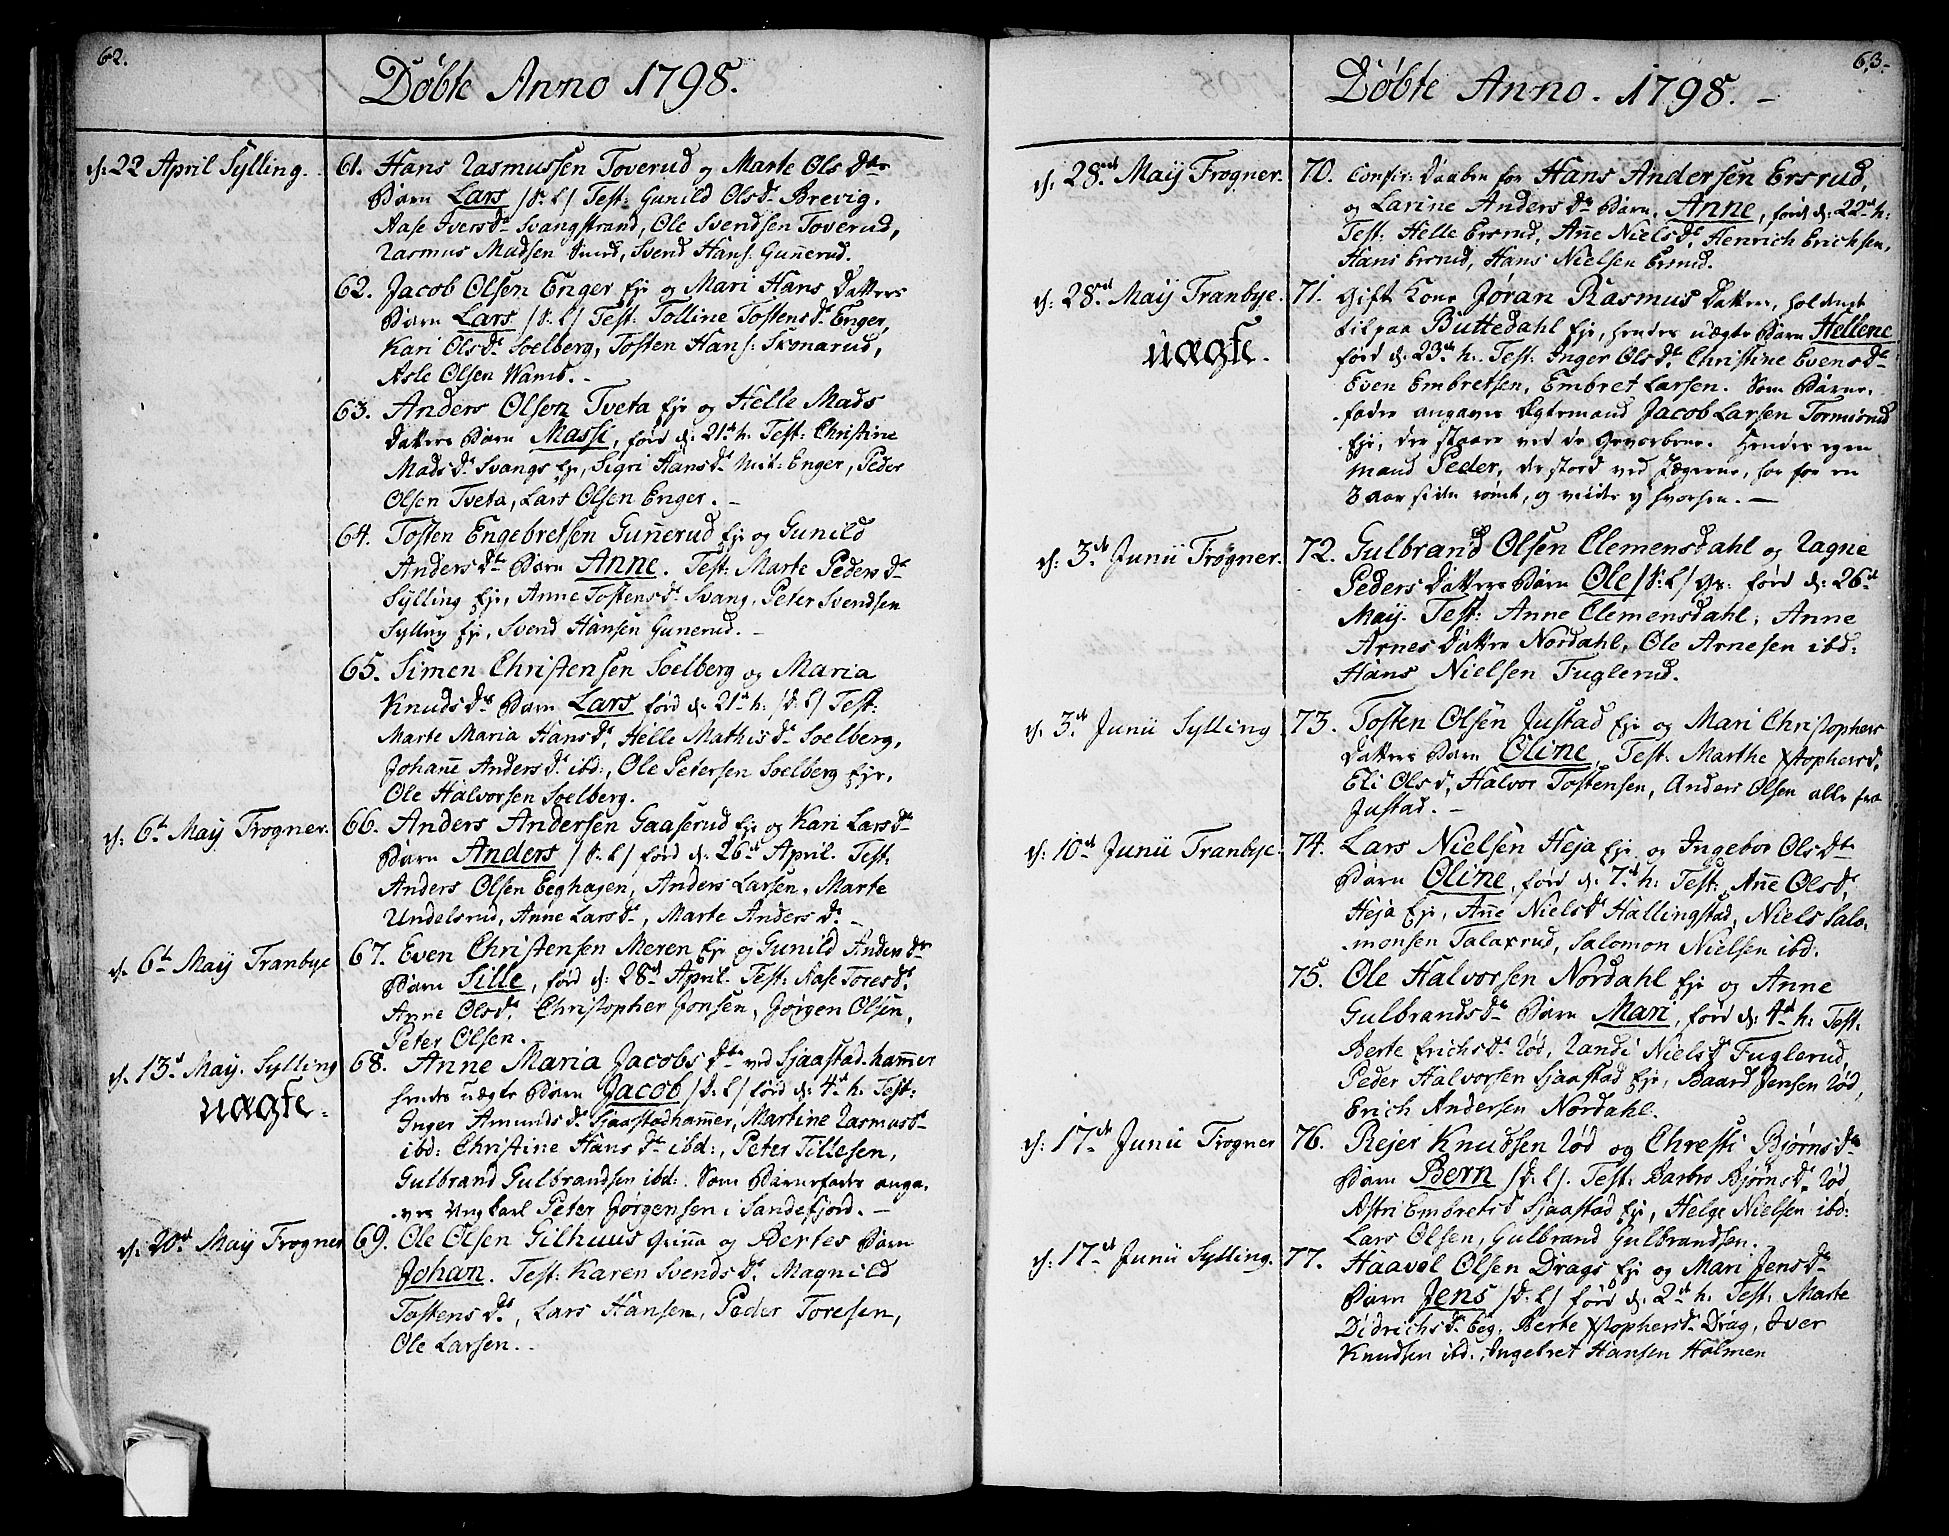 62.
Døbte Anno 1798.
d: 22 April Sylling.
61. Hans Rasmussen Toverud og Marte Ols Dtr
Barn Lars /S: L/ Test: Gunild Olsd Brevig.
Aase Iversd Svangstrand, Ole Svendsen Toverud,
Rasmus Madsen, Svend Hans: Guñerud.
62. Jacob Olsen Enger Eje og Mari Hans Datters
Barn Lars /S: L/ Test: Tolline Tostensd Enger,
Kari Olsd Soelberg, Tosten Hans:
Asle Olsen Wamb. -
63. Anders Olsen Tveta Eje og Helle Mads
Datters Barn Massi, förd d: 21 h: Test: Christine
Madsd Svangs Eje, Sigri Hansd Mit: Enger, Peder
Olsen Tveta, Lars Olsen Enger. -
64. Tosten Engebretsen Guñerud Eje og Gunild
Andersd Barn Anne. Test: Marte Pedersd
Sylling Eje, Anne Tostensd Svang, Peter Svendsen
Sylling Eje, Svend Hansen Gunerud. -
65. Simen Christensen Soelberg og Maria
Knudsd Barn Lars förd d: 21 h: /S: L/ Test:
Marte Maria Hansd, Helle Mathisd Soelberg,
Johañe Andersd ibd:, Ole Petersen Soelberg Eje,
Ole Halvorsen Soelberg.
d: 6t May Frogner.
66. Anders Andersen Gaaserud Eje og Kari Larsd
Barn Anders /S: L/ förd d: 26 April. Test:
Anders Olsen Eeghagen, Anders Larsen, Marte
Undelsrud, Anne Larsd, Marte Andersd -
d: 6t May Tranbye
67. Even Christensen Meren Eje og Gunild Andersd
Barn Sille, förd d: 28 April. Test: Aase Toresd
Anne Olsd, Christopher Jonsen, Jörgen Olsen,
Peter Olsen.
d: 13 May. Sylling
uægte.
68. Anne Maria Jacobsd ved Sjaastad-ham̃er
hendes uægte Barn Jacob /S: L/ förd d: 4 h: Test:
Inger Amundsd Sjaastadham̃er, Martine Rasmusd
ibd: Christine Hansd ibd:, Peter Tillesen,
Gulbrand Gulbrandsen ibd: Som Barnefader anga-
ves Ungkarl Peter Jørgensen i Sandefjord. -
d: 20 May Frogner
69. Ole Olsen Gilhuus og Bertes Barn
Johan. Test: Karen Svendsd Magnild
Tostensd, Lars Hansen, Peder Toresen,
Ole Larsen. -
63.
Døbte Anno. 1798. -
d: 28 May Frogner.
70. Confir: Daaben for Hans Andersen Ersrud,
og Larine Andersd Barn, Anne, förd d: 22 h:
Test: Helle Ersrud, Añe Nielsd, Henrich Erichsen,
Hans Ersrud, Hans Nielsen Ersrud.
d: 28 May Tranbye.
uægte.
71. Gift Kone Jøran Rasmus Datter, holdende
til paa Buttedahl Eje, hendes uægte Barn Hellene
förd d: 23 h: Test: Inger Olsd, Christine Evensd
Even Embretsen, Embret Larsen. Som Barne-
fader angaves Ægtemand Jacob Larsen
Eje, der staaer ved de Gevorbene. Hendes egen
mand Peder, der stod ved Jægerne, har for en
3 aar siden römt, og vides ej hvorhen. -
d: 3 Junii Frogner.
72. Gulbrand Olsen Clemensdahl og Ragne
Peders Datters Barn Ole /S: L/ förd d: 26
May. Test: Anne Clemensdahl, Anne
Arnes Datter Nordahl, Ole Arnesen ibd:
Hans Nielsen Fuglerud.
d: 3 Junii Sylling
73. Tosten Olsen Justad Eje og Mari Christophers
Datters Barn Oline, Test: Marthe Xstophersd,
Eli Olsd, Halvor Tostensen, Anders Olsen alle fra
Justad. -
d: 10 Junii Tranbye.
74. Lars Nielsen Heja Eje og Ingebor Olsdt
Barn Oline, förd d: 7 h: Test: Añe Olsd,
Heja Eje, Añe Nielsd Hallingstad, Niels Salo-
monsen Talaxrud, Salomon Nielsen ibd:
75. Ole Halvorsen Nordahl Eje og Anne
Gulbrandsd Barn Mari, förd d: 4 h: Test:
Berte Erichsd Röd, Randi Nielsd Fuglerud,
Peder Halvorsen Sjaastad Eje, Baard Jensen Röd,
Erich Andersen Nordahl.
d: 17 Junii Frogner
76. Rejer Knudsen Röd og Chresti Bjørnsd
Barn Bern /S: L/. Test: Barbro Bjørnsd Röd
Astri Embretsd Sjaastad Eje, Helge Nielsen ibd:
Lars Olsen, Gulbrand Gulbrandsen.
d: 17 Junii Sylling.
77. Haavel Olsen Drags Eje og Mari Jensd
Barn Jens /S: L/ förd d: 2 h: Test: Marte
Didrichsd Eeg, Berte Xstophersd Drag, Iver
Knudsen ibd:, Ingebret Hansen Holmen